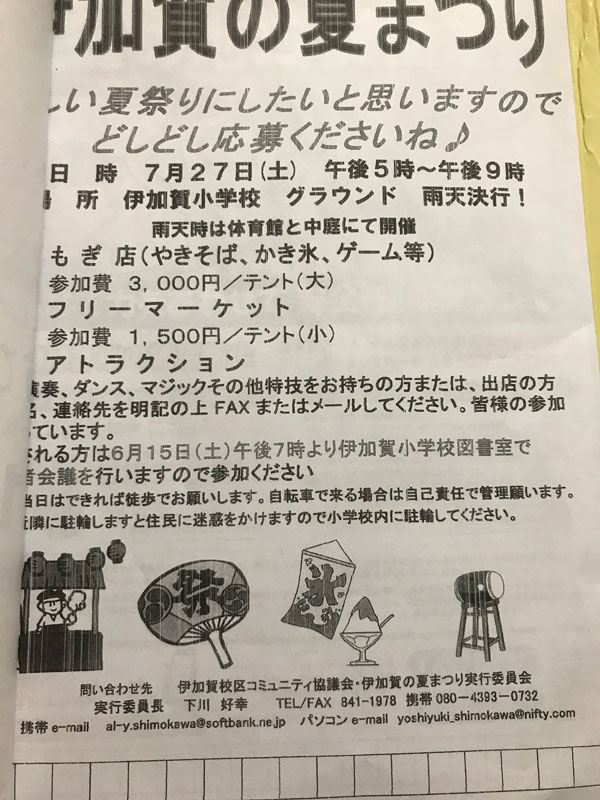 伊加賀の夏まつり
しい夏祭りにしたいと思いますので
どしどし応募くださいね♪
日 時 7月27日(土) 午後5時～午後9時
場 所 伊加賀小学校 グラウンド 雨天決行！
雨天時は体育館と中庭にて開催
もぎ店(やきそば、かき氷、ゲーム等)
参加費 3,000円／テント(大)
フリーマーケット
参加費 1,500円／テント(小)
アトラクション
演奏、ダンス、マジックその他特技をお持ちの方または、出店の方
名、連絡先を明記の上 FAX またはメールしてください。皆様の参加
っています。
される方は6月15日(土)午後7時より伊加賀小学校図書室で
者会議を行いますので参加ください
当日はできれば徒歩でお願いします。自転車で来る場合は自己責任で管理願います。
近隣に駐輪しますと住民に迷惑をかけますので小学校内に駐輪してください。
祭
氷
問い合わせ先 伊加賀校区コミュニティ協議会・伊加賀の夏まつり実行委員会
実行委員長 下川 好幸 TEL/FAX 841-1978 携帯 080-4393-0732
携帯 e-mail al-y.shimokawa@softbank.ne.jp パソコン e-mail yoshiyuki_shimokawa@nifty.com